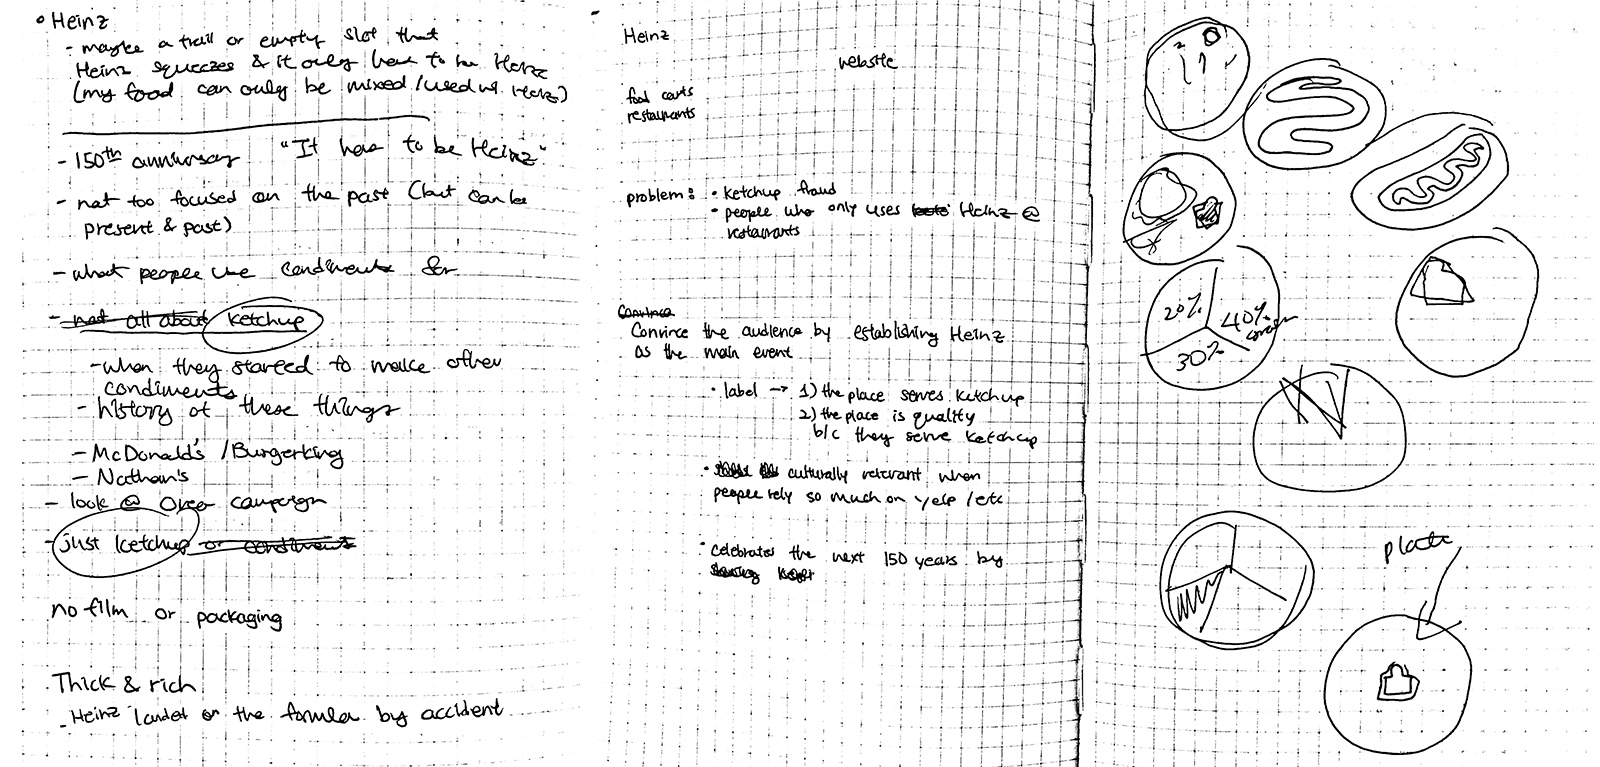 • Heinz
- maybe a trail or empty slot that
Heinz squeezes & it only has to be Heinz
(my food can only be mixed/used w. Heinz)
- 150th anniversary "It has to be Heinz"
- not too focused on the past (but can be
present & past)
- what people use condiments for
- not all about ketchup
- when they started to make other
condiments
- history of these things
- McDonald's / Burgerking
- Nathan's
- look @ Oreo campaign
- just ketchup or condiments
no film or packaging
Thick & rich
- Heinz landed on the formula by accident
Heinz
website
food carts
restaurants
problem: • ketchup fraud
• people who only uses Heinz @
restaurants
Convince
Convince the audience by establishing Heinz
as the main event
• label → 1) the place serves ketchup
2) the place is quality
b/c they serve ketchup
• culturally relevant when
people rely so much on yelp /etc
• celebrates the next 150 years by
20%
40%
30%
plate